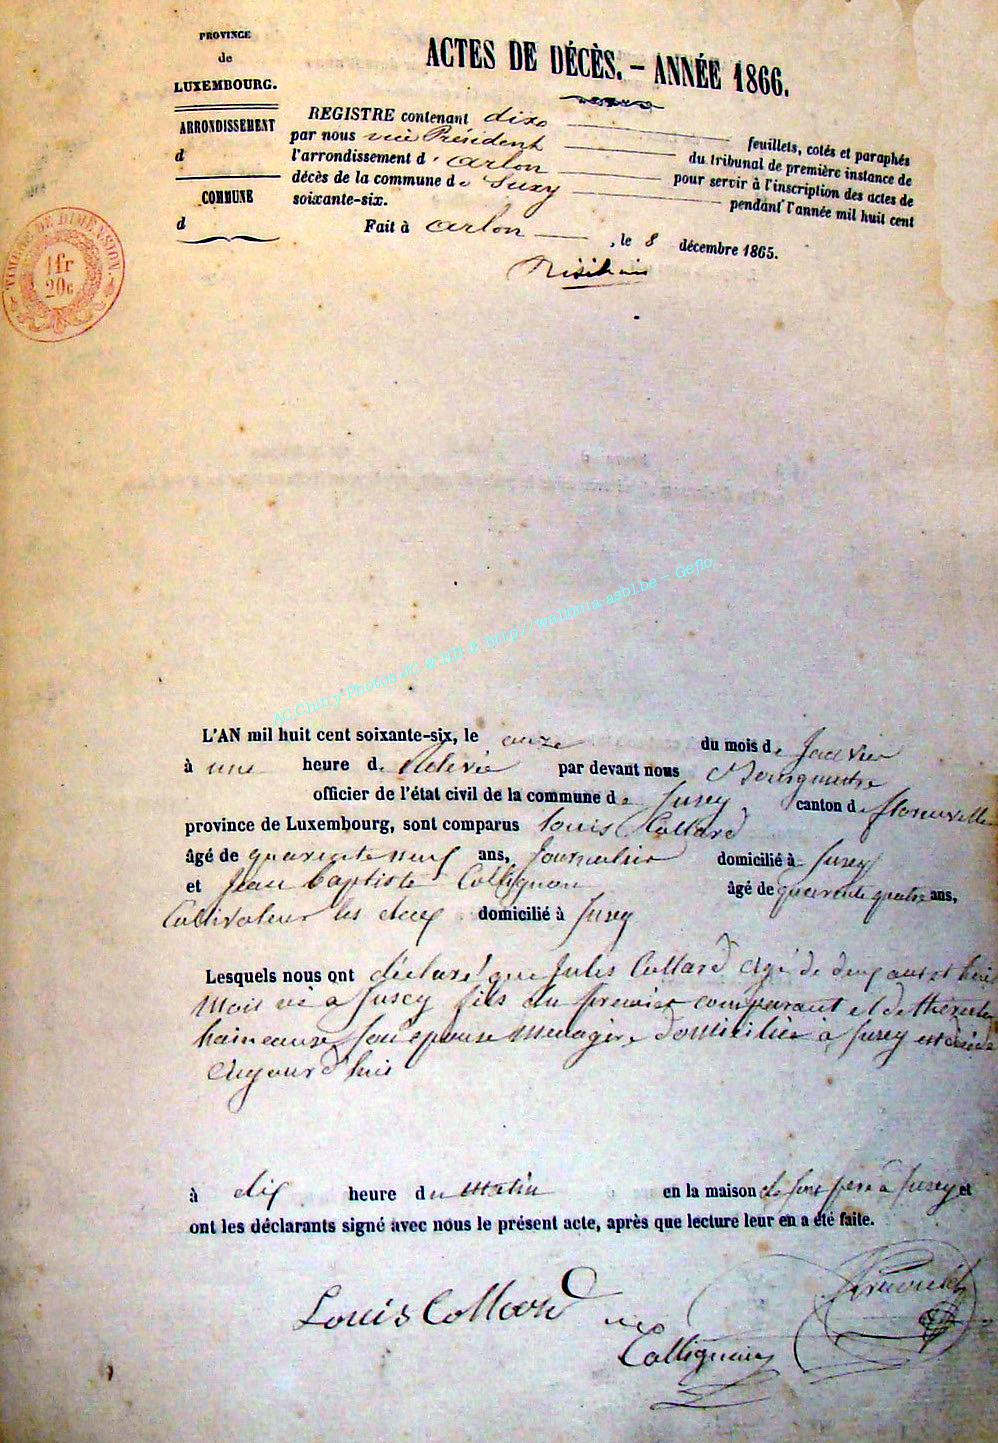 PROVINCE
de
LUXEMBOURG.
ARRONDISSEMENT
d
COMMUNE
d
TIMBRE DE DIMENSION.
1fr
20c
ACTES DE DÉCÈS. - ANNÉE 1866.
REGISTRE contenant dix feuillets, cotés et paraphés
par nous vice Président du tribunal de première instance de
l'arrondissement d'arlon pour servir à l'inscription des actes de
décès de la commune de Suxy pendant l'année mil huit cent
soixante-six.
Fait à arlon, le 8 décembre 1865.
AC Chiny Photos JC & NH & http://wallonia-asbl.be - Geflo
L'AN mil huit cent soixante-six, le onze du mois de Janvier
à une heure de relevée par devant nous Bourgmestre
officier de l'état civil de la commune de Suxey canton de florenville
province de Luxembourg, sont comparus Louis Collard
âgé de quarante neuf ans, Journalier domicilié à Suxey
et Jean baptiste Collignon âgé de quarante quatre ans,
Cultivateur les deux domicilié à Suxey
Lesquels nous ont déclaré que Jules Collard agé de deux ans et huit
mois né à Suxey fils du premier comparant et de
haineaux son épouse menagère domiciliée à Suxey est décédé
aujourd'hui
à dix heure du matin en la maison de son père à Suxey et
ont les déclarants signé avec nous le présent acte, après que lecture leur en a été faite.
Louis Collard
Collignon